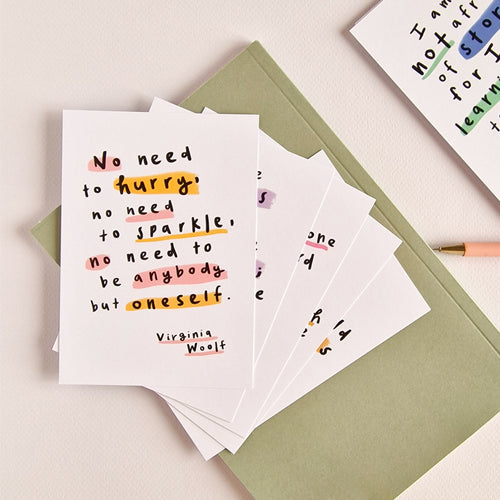 No need
to hurry,
no need
to sparkle,
no need to
be anybody
but oneself.
Virginia
Woolf
I am
not
of stor
for I
learni
one